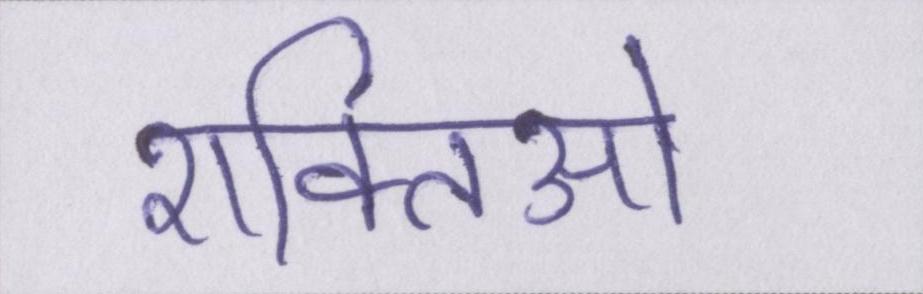 शक्तिओ